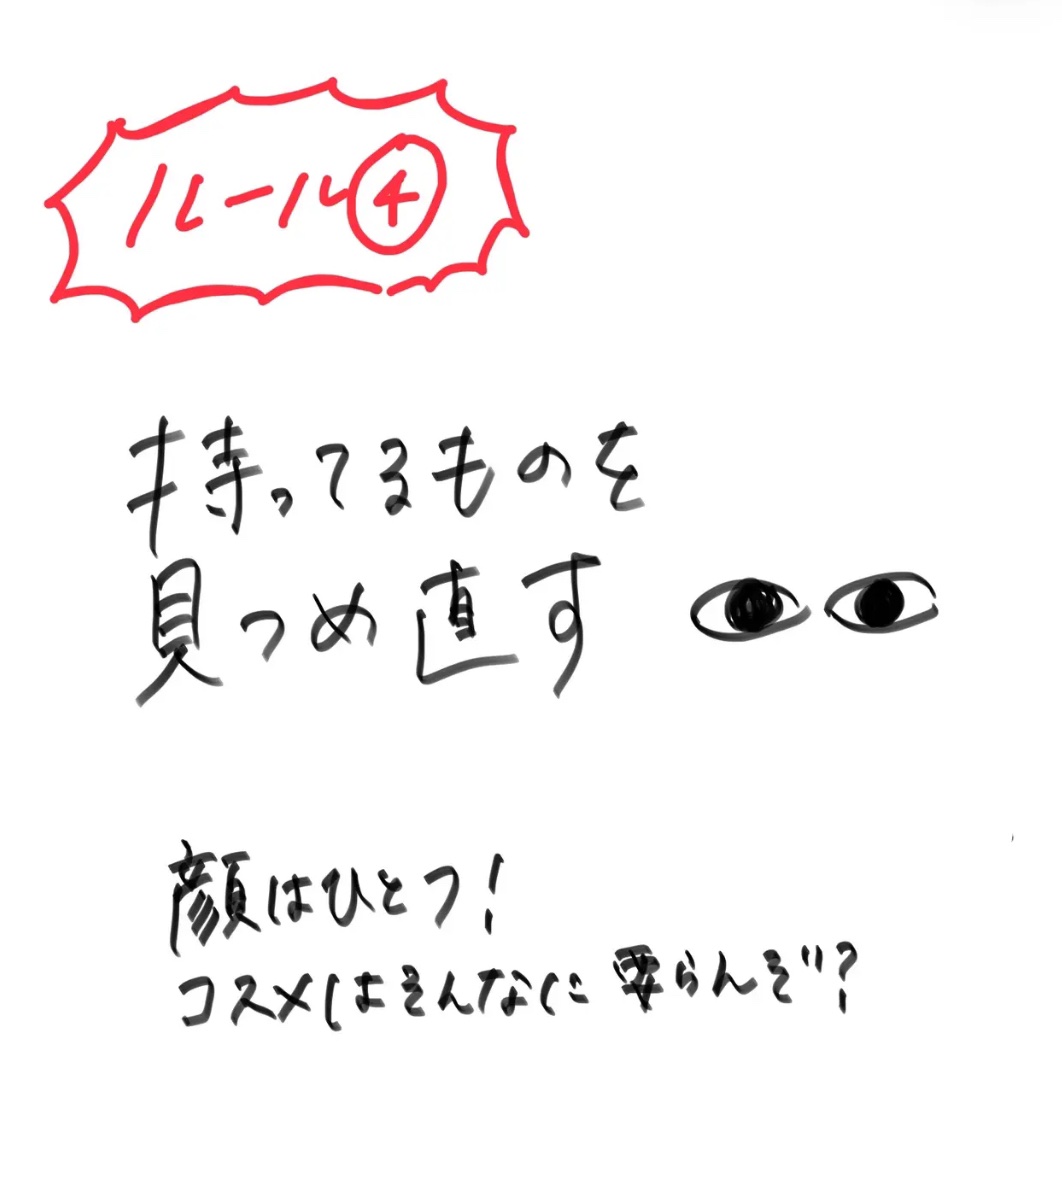 ルール④
持ってるものを
見つめ直す
顔はひとつ!
コスメはそんなに要らんぞ?